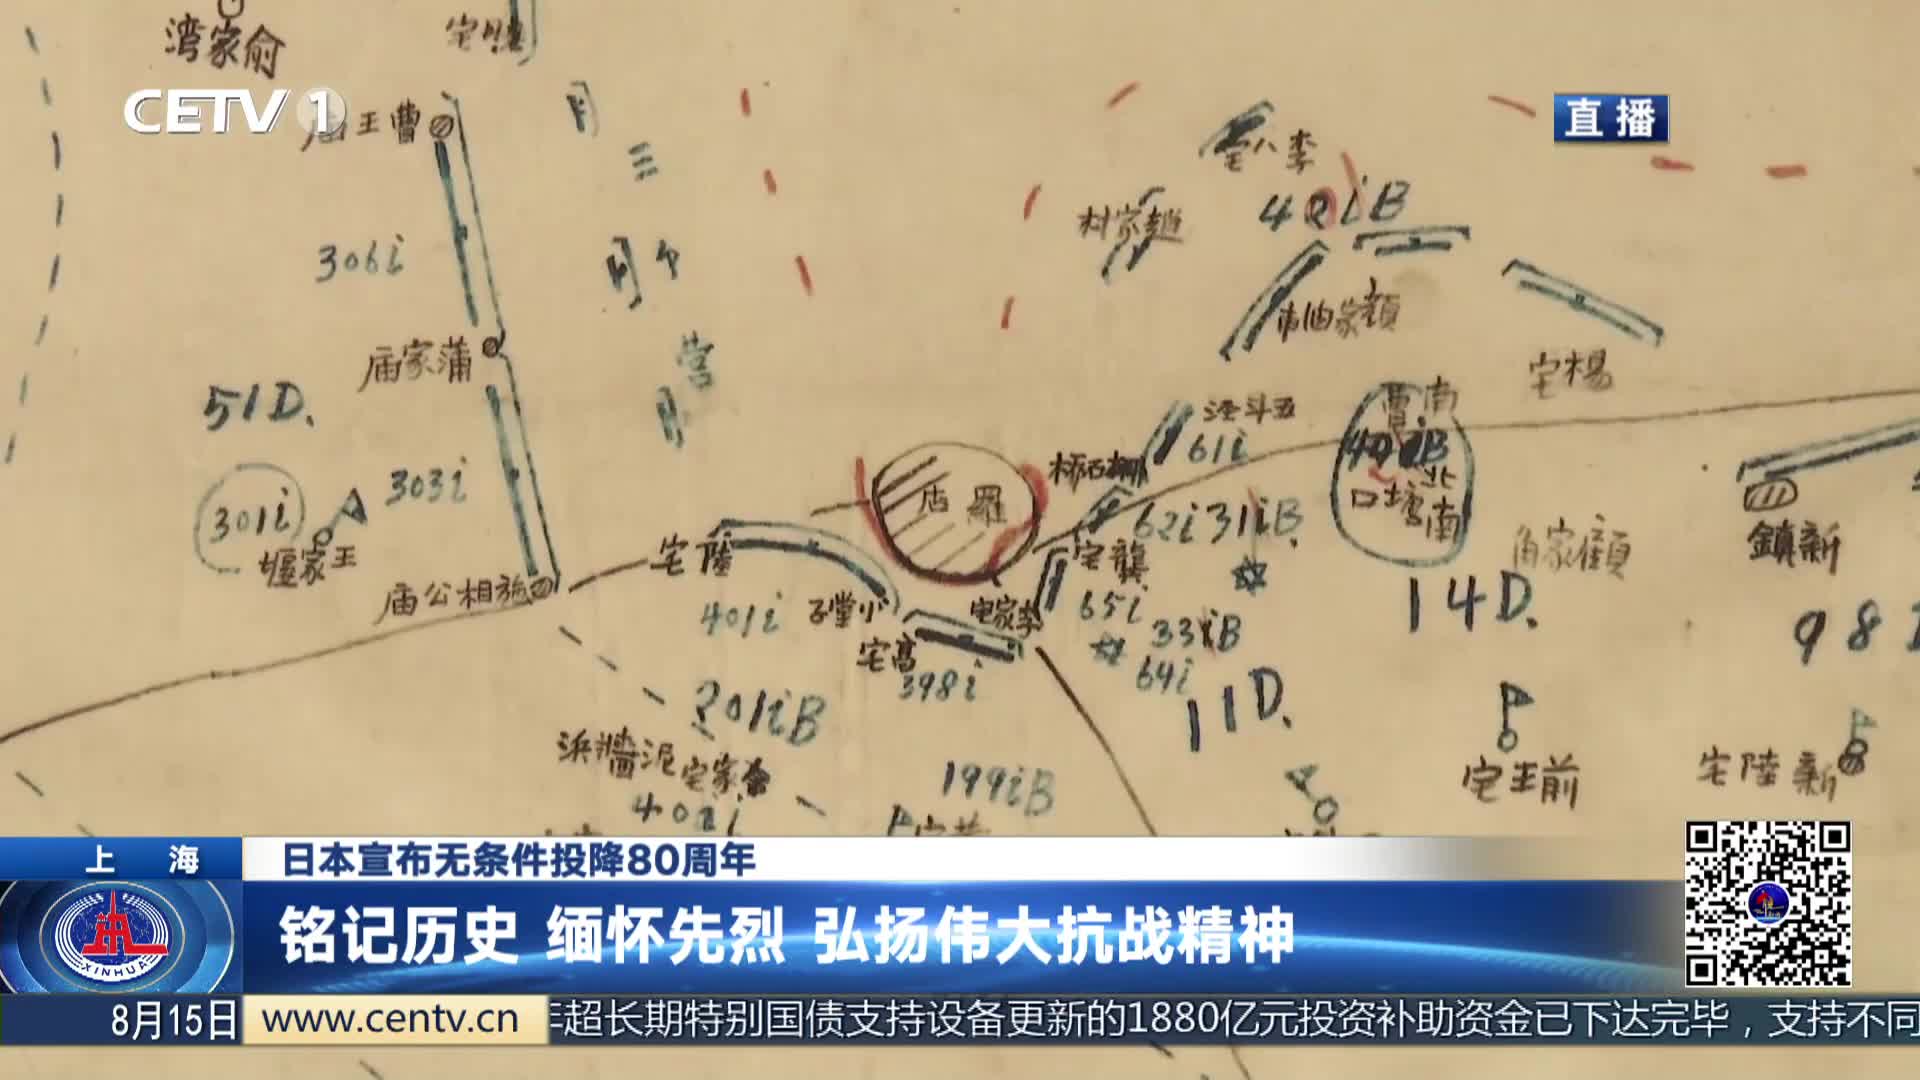 湾家俞
宅
CETV 1
庙王曹
直播
三
宅八李
306i
个
村家趙
401iB
庙家蒲
营
宅楊
51D.
303i
301i
堰家王
庙公相施
泾斗五
61i
桥石
店羅
62i 31iB.
南
北
口塘南
鎮新
角家顧
宅陸
宅龔
401i
子堂小
宅家李
65i
33iB
14D.
98D
宅高
398i
64i
11D.
201iB
浜 泥
宅家金
402i
199iB
宅王前
宅陸新
上 海
日本宣布无条件投降80周年
XINHUA
铭记历史 缅怀先烈 弘扬伟大抗战精神
8月15日
www.centv.cn
年超长期特别国债支持设备更新的1880亿元投资补助资金已下达完毕，支持不同